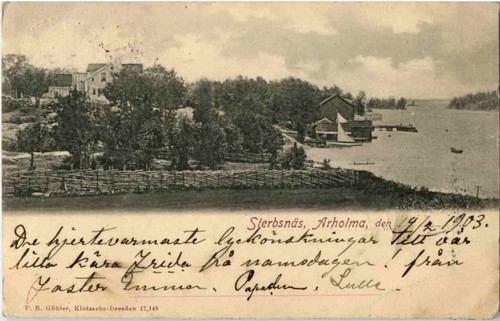 Sjerbsnäs, Arholma, den 19/2 1903.
De hjertevarmaste lyckönskningar till vår
lilla kära Frida på namsdagen. från
Faster Emma. Lull.
F. B. Gübler, Klotzsche-Dresden 17,148